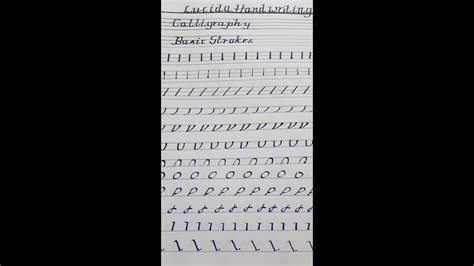 Lucida Handwriting
Calligraphy
Basic Strokes